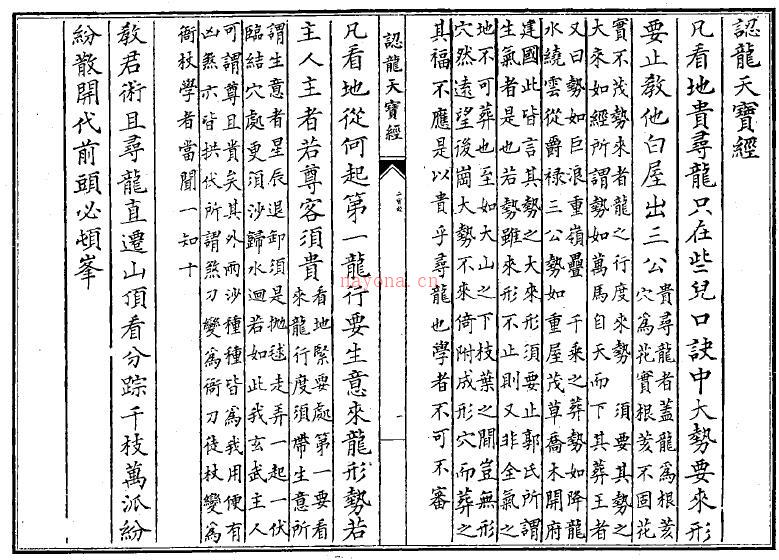 認龍天寶經
凡看地貴尋龍只在些兒口訣中大勢要來形
要止教他白屋出三公
貴尋龍者蓋龍為根荄
穴為花實根荄不固花
實不茂勢來者龍之行度來勢 須要其勢之
大來如經所謂勢如萬馬自天而下其葬王者
又曰勢如巨浪重嶺疊 千乘之葬勢如降龍
水繞雲從爵祿三公勢如重屋茂草喬木開府
建國此皆言其勢之大來形須要止郭氏所謂
生氣者是也若勢雖來形不止則又非全氣之
地不可葬也至如大山之下枝葉之間豈無形
穴然遠望後崗大勢不來倚附成形穴而葬之
其福不應是以貴乎尋龍也學者不可不審
認龍天寶經
一
凡看地從何起第一龍行要生意來龍形勢若
主人主者若尊客須貴
看地緊要處第一要看
來龍行度須帶生意所
謂生意者星辰退卸須是拋毬走弄一起一伏
臨結穴處更須沙歸水迴若如此我玄武主人
可謂尊且貴矣其外兩沙種種皆為我用便有
凶煞亦皆拱伏所謂煞刀變為衙刀徒杖變為
衙杖學者當聞一知十
教君術且尋龍直遷山頂看分踪千枝萬派紛
紛散開代前頭必頓峯
nayona.cn